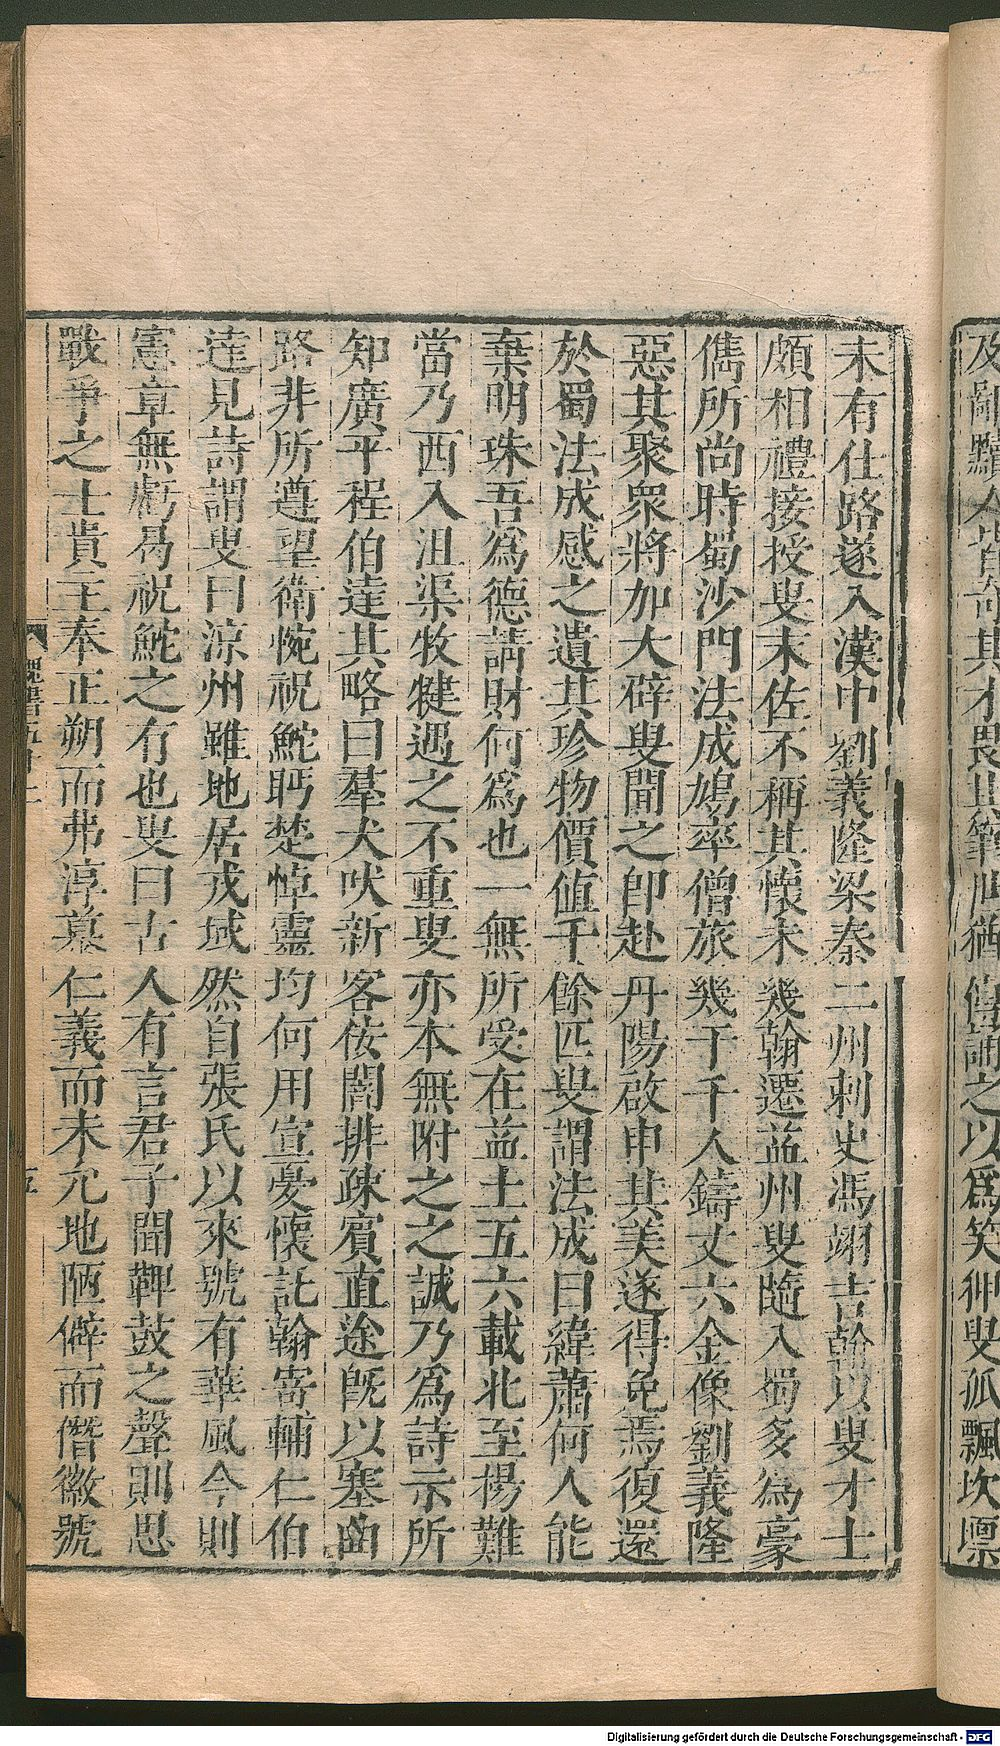 及辭黷人皆奇其才畏其筆世猶傳誦之以爲笑狎叟孤飄坎壈
未有仕路遂入漢中劉義隆梁秦二州刺史馮翊吉翰以叟才士
頗相禮接授叟末佐不稱其懷未幾翰遷益州叟隨入蜀多爲豪
儁所尚時蜀沙門法成鳩率僧旅幾于千人鑄丈六金像劉義隆
惡其聚衆將加大辟叟聞之卽赴丹陽啟申其美遂得免焉復還
於蜀法成感之遺其珍物價值千餘匹叟謂法成曰緯蕭何人能
棄明珠吾爲德請財何爲也一無所受在益土五六載北至楊難
當乃西入沮渠牧犍遇之不重叟亦本無附之之誠乃爲詩示所
知廣平程伯達其略曰羣犬吠新客佞闇排疎賓直途旣以塞曲
路非所遵望衛惋祝鮀眄楚悼靈均何用宣憂懷託翰寄輔仁伯
達見詩謂叟曰涼州雖地居戎域然自張氏以來號有華風今則
憲章無虧曷祝鮀之有也叟曰古人有言君子聞鞞鼓之聲則思
戰爭之士貴主奉正朔而弗淳慕仁義而未允地陋僻而僭徽號
魏書五十二
五
Digitalisierung gefördert durch die Deutsche Forschungsgemeinschaft - DFG